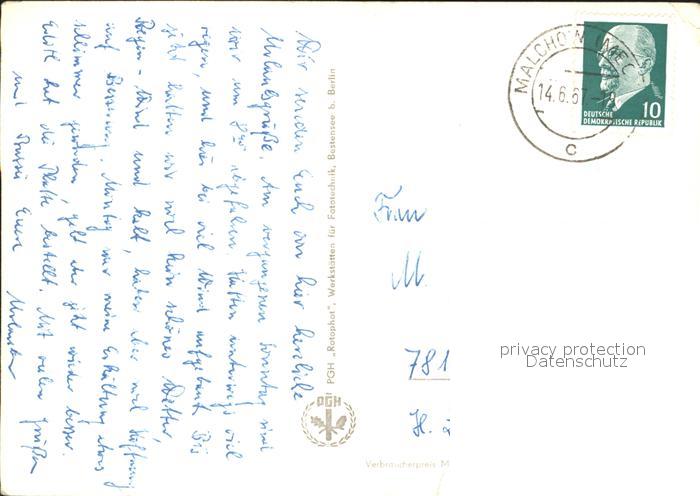 Wir senden Euch von hier herzliche
Urlaubsgrüße. Am vergangenen Sonntag sind
wir um 8 abgefahren. Hatten unterwegs viel
Regen, und hier bei viel Wind aufgebaut. Bis
jetzt hatten wir noch kein schönes Wetter
Regen - Wind und kalt, haben aber noch Hoffnung
auf Besserung. Montag war meine Erkältung etwas
schlimmer geworden, geht aber jetzt wieder besser.
hat die Platte bestellt. Mit vielen Grüßen
und Eure
PGH „Rotophot“, Werkstätten für Fototechnik, Bestensee b. Berlin
PGH
Verbraucherpreis M
MALCHOW (MECKL
14.6.67
c
10
DEUTSCHE
DEMOKRATISCHE REPUBLIK
Frau
M.
781
H.
privacy protection
Datenschutz